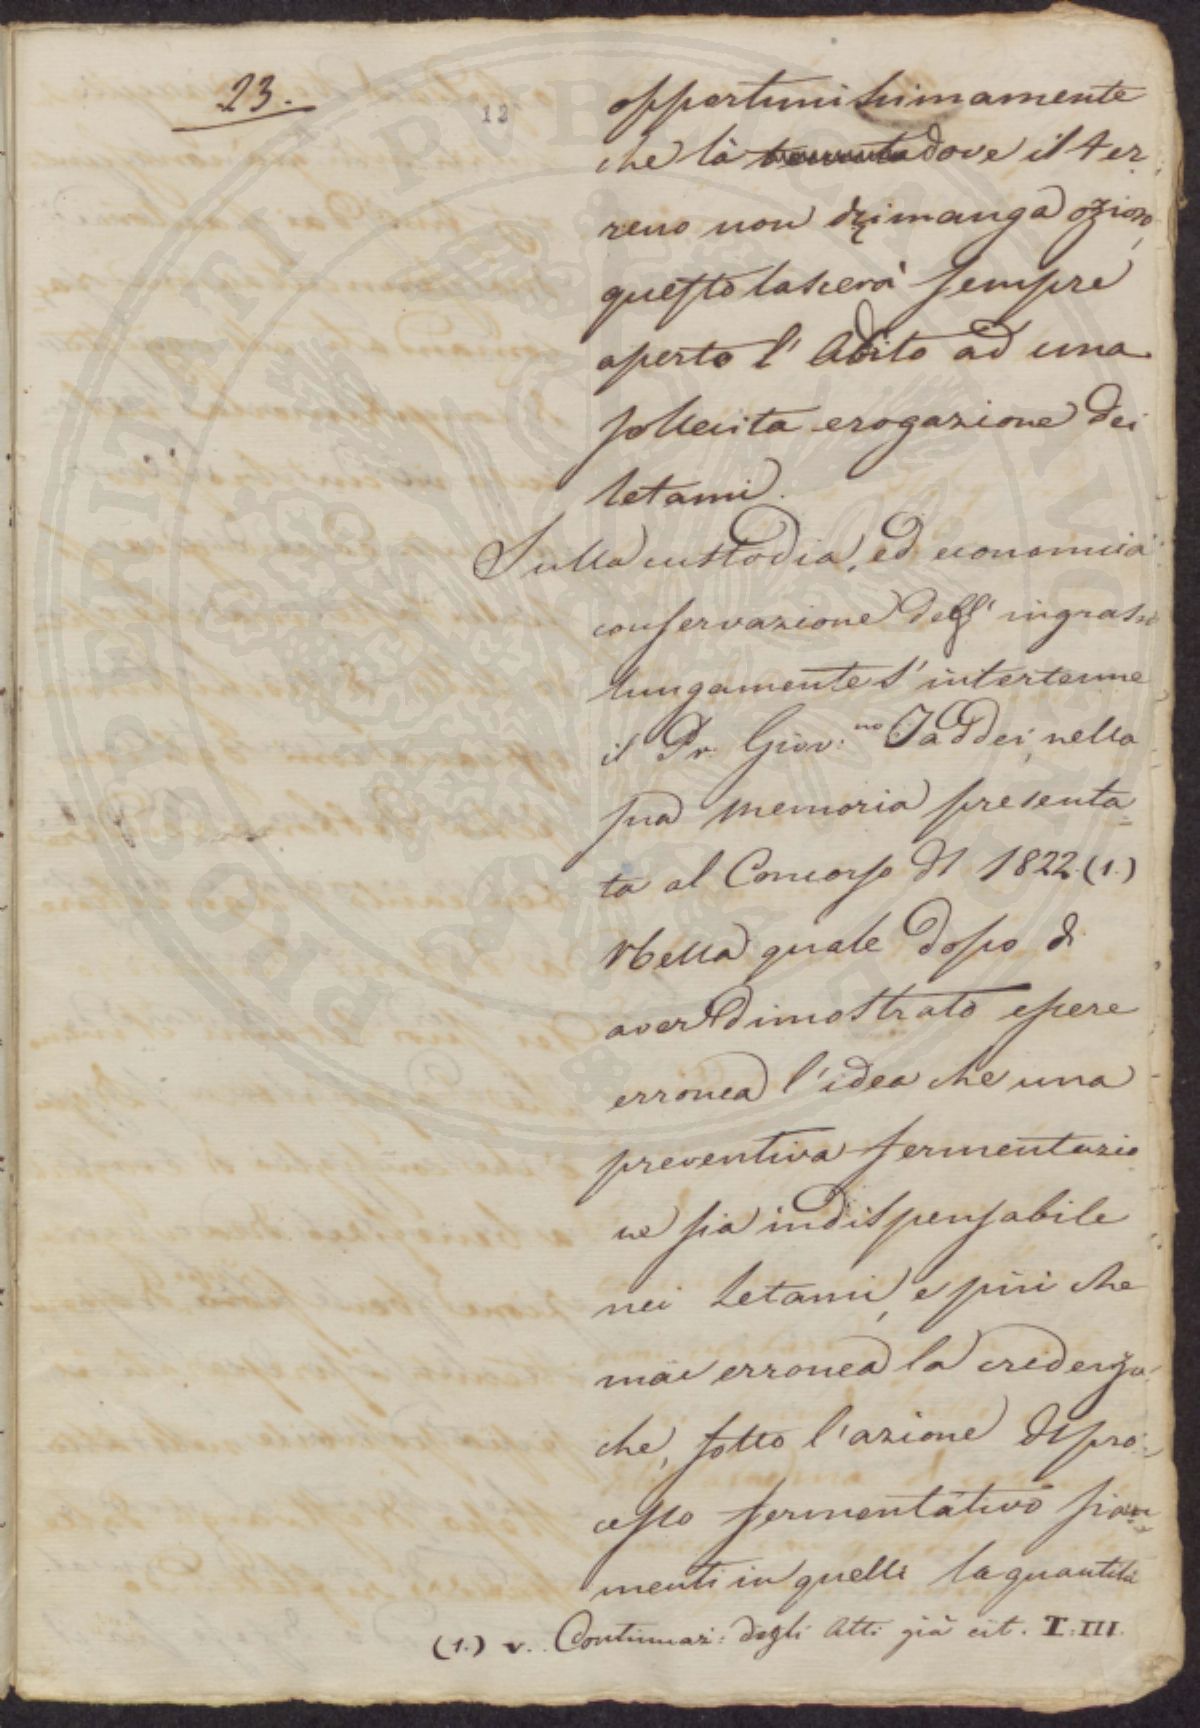 23.
12
opportunissimamente
che là dove il ter
reno non rimanga ozioso,
questo lascerà sempre
aperto l' Adito ad una
sollecita erogazione dei
letami.
Sulla custodia, ed economica
conservazione degl' ingrassi
lungamente s' intertenne
il Dr. Giov:no Taddei, nella
sua memoria presenta=
ta al Concorso del 1822. (1.)
Nella quale dopo di
aver dimostrato essere
erronea l'idea che una
preventiva fermentazio
ne sia indispensabile
nei Letami, e più che
mai erronea la credenza
che, sotto l'azione del pro=
cesso fermentativo si au
menti in quelli la quantità
(1.) v. Continuaz: degli Atti già cit. T. III.
POSTERITATI PUBLICAE